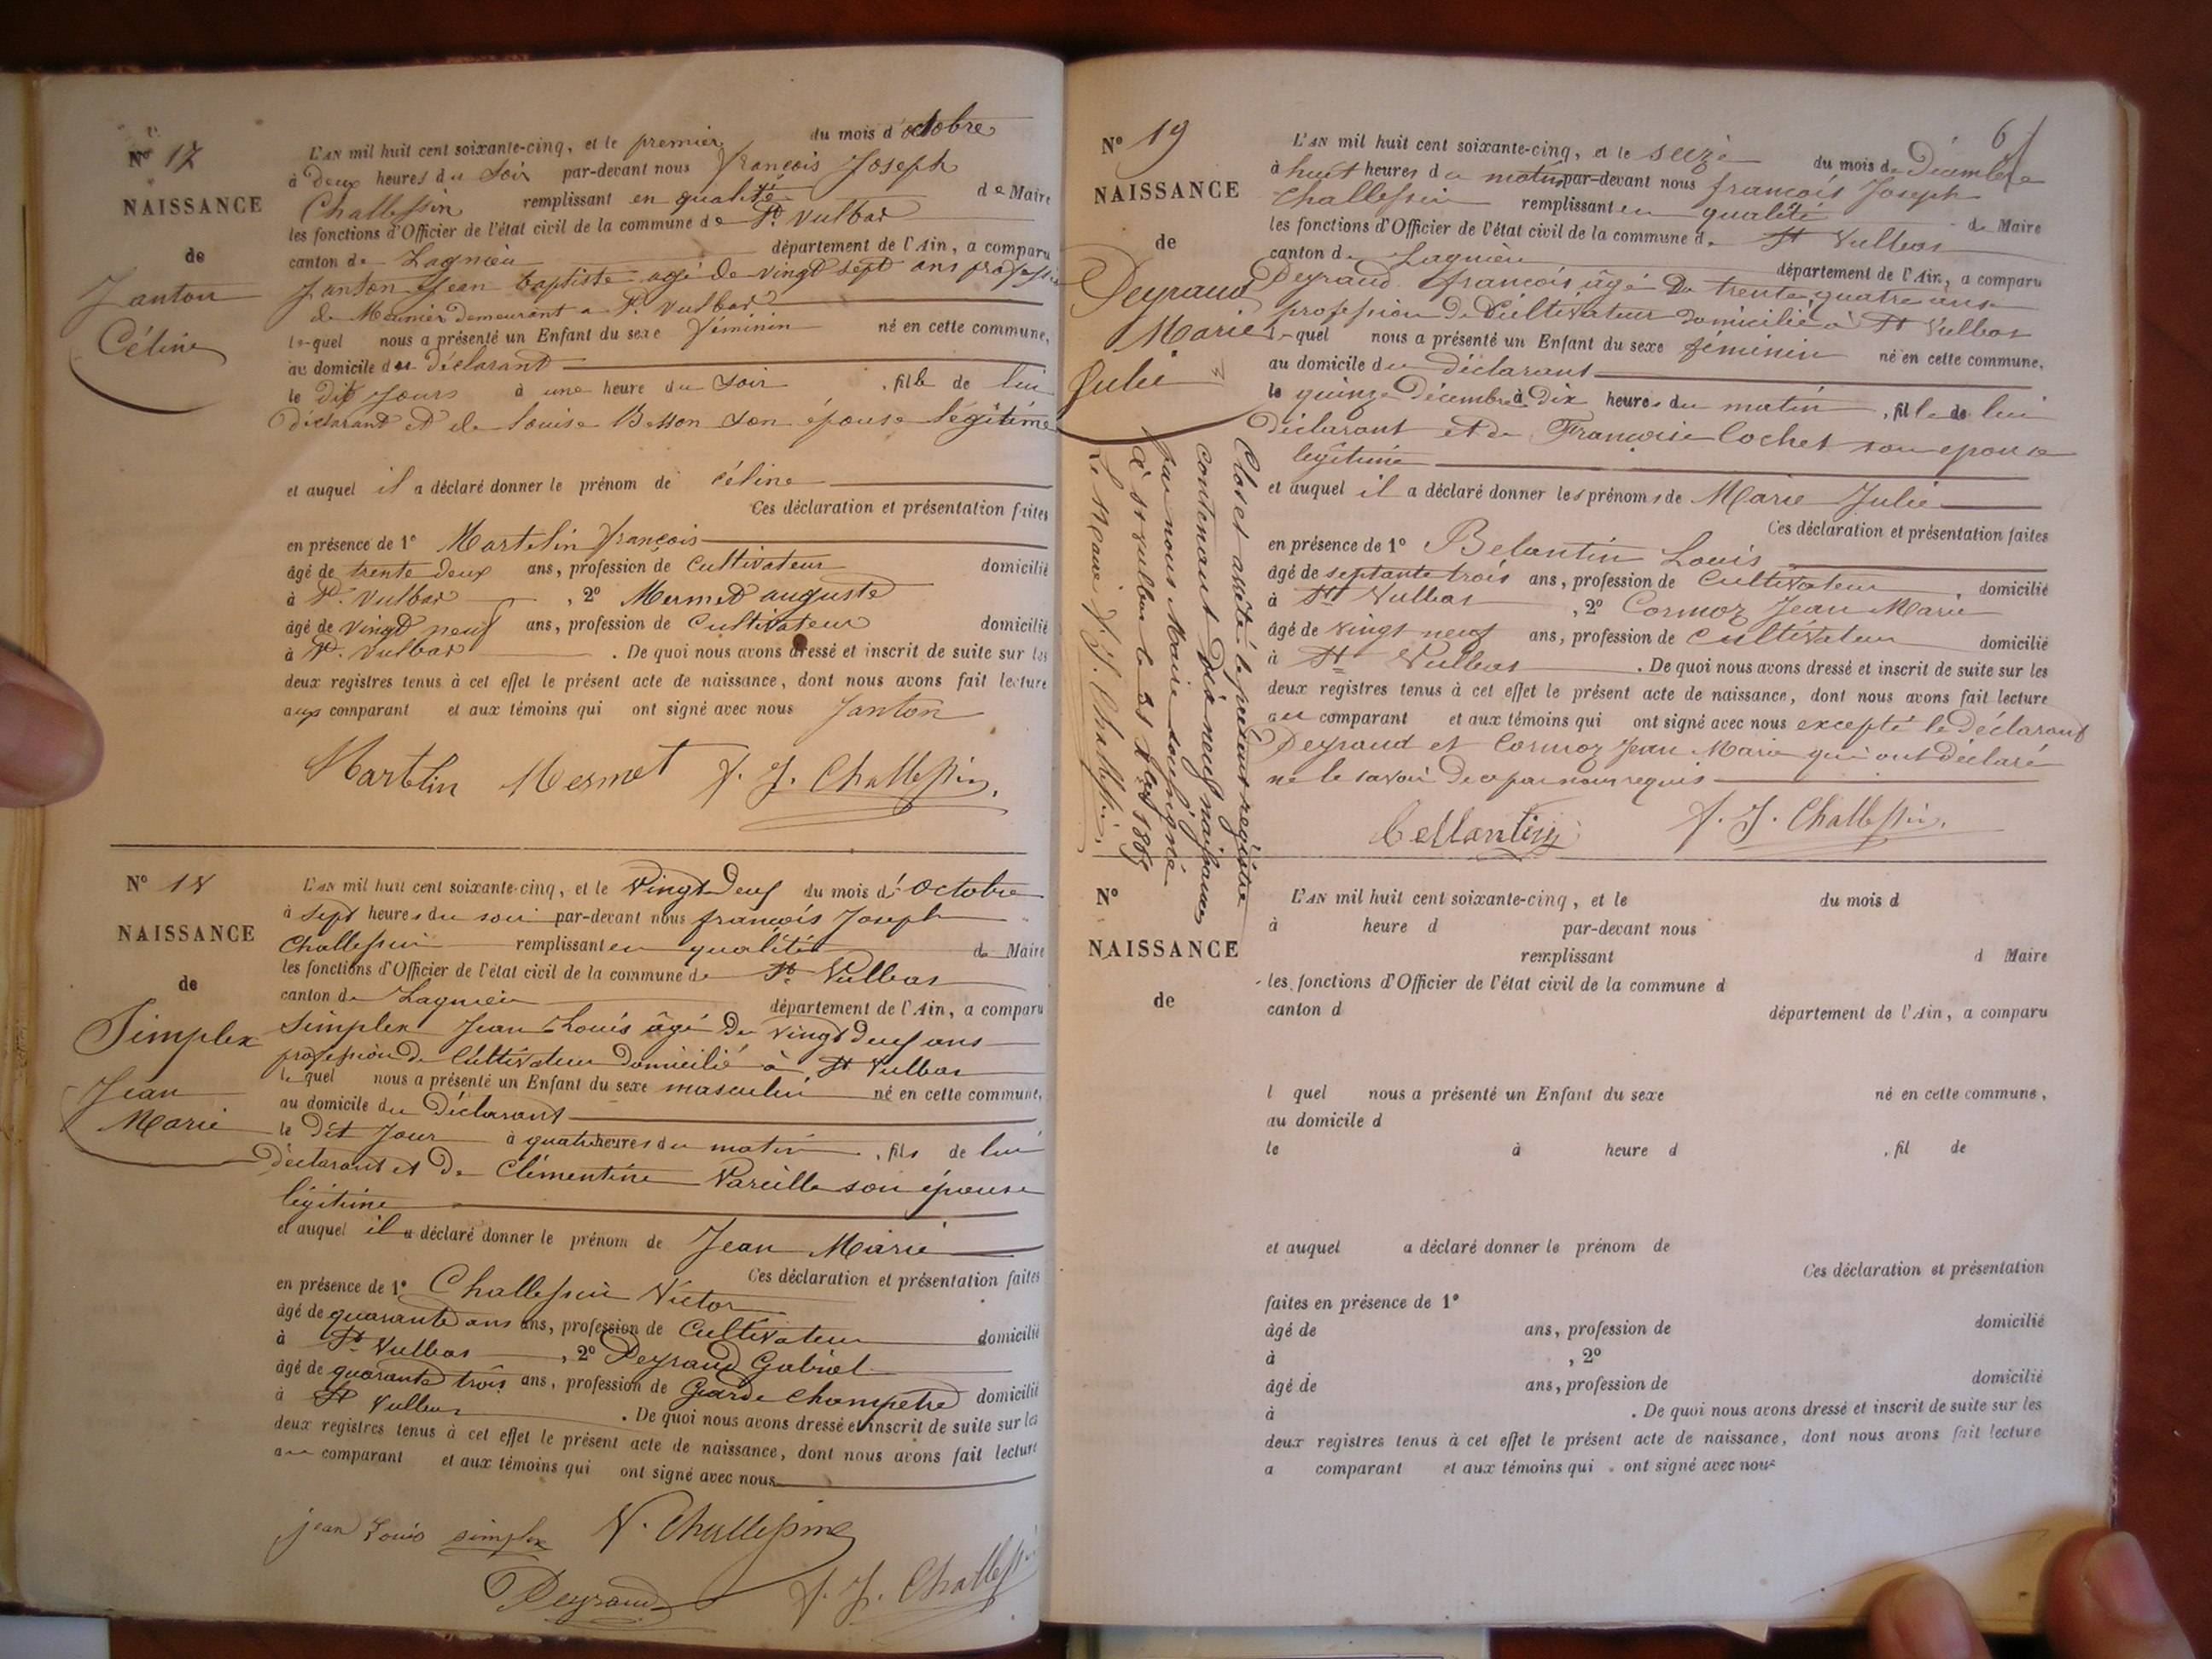 N° 17
NAISSANCE
de
Janton
Céline
L'AN mil huit cent soixante-cinq, et le premier du mois d'octobre
à deux heures du soir par-devant nous françois Joseph
Challessin remplissant en qualité de Maire
les fonctions d'Officier de l'état civil de la commune de St. Vulbas
canton de Lagnieu département de l'Ain, a comparu
Janton Jean baptiste agé de vingt sept ans profession
de Meunier demeurant a St. Vulbas
lequel nous a présenté un Enfant du sexe féminin né en cette commune,
au domicile du déclarant
le dit jours à une heure du soir, fille de lui
déclarant et de Louise Besson son épouse légitime
et auquel il a déclaré donner le prénom de Céline
Ces déclaration et présentation faites
en présence de 1° Martelin françois
âgé de trente deux ans, profession de Cultivateur domicilié
à St. Vulbas, 2° Mermet auguste
âgé de vingt neuf ans, profession de Cultivateur domicilié
à St. Vulbas. De quoi nous avons dressé et inscrit de suite sur les
deux registres tenus à cet effet le présent acte de naissance, dont nous avons fait lecture
aux comparant et aux témoins qui ont signé avec nous Janton
Martelin Mermet f. J. Challessin.
N° 18
NAISSANCE
de
Simplex
Jean
Marie
L'AN mil huit cent soixante-cinq, et le vingt deux du mois d'Octobre
à sept heures du soir par-devant nous françois Joseph
Challessin remplissant en qualité de Maire
les fonctions d'Officier de l'état civil de la commune de St Vulbas
canton de Lagnieu département de l'Ain, a comparu
Simplex Jean Louis âgé de vingt deux ans
profession de Cultivateur domicilié à St Vulbas
lequel nous a présenté un Enfant du sexe masculin né en cette commune,
au domicile du Déclarant
le dit Jour à quatre heures du matin, fils de lui
déclarant et de Clémentine Pareille son épouse
légitime
et auquel il a déclaré donner le prénom de Jean Marie
Ces déclaration et présentation faites
en présence de 1° Challessin Victor
âgé de quarante ans ans, profession de Cultivateur domicilié
à St Vulbas, 2° Peyraud Gabriel
âgé de quarante trois ans, profession de Garde Champetre domicilié
à St Vulbas. De quoi nous avons dressé et inscrit de suite sur les
deux registres tenus à cet effet le présent acte de naissance, dont nous avons fait lecture
au comparant et aux témoins qui ont signé avec nous
jean Louis simplex V. Challessin
Peyraud f. J. Challessin
6
N° 19
NAISSANCE
de
Peyraud
Marie
Julie
L'AN mil huit cent soixante-cinq, et le seize du mois de Décembre
à huit heures du matin par-devant nous françois Joseph
Challessin remplissant en qualité de Maire
les fonctions d'Officier de l'état civil de la commune de St Vulbas
canton de Lagnieu département de l'Ain, a comparu
Peyraud françois âgé de trente quatre ans
profession de Cultivateur domicilié à St Vulbas
lequel nous a présenté un Enfant du sexe féminin né en cette commune,
au domicile du déclarant
le quinze Décembre à Dix heures du matin, fille de lui
déclarant et de Françoise Cochet son epouse
légitime
et auquel il a déclaré donner les prénoms de Marie Julie
Ces déclaration et présentation faites
en présence de 1° Belantin Louis
âgé de septante trois ans, profession de Cultivateur, domicilié
à St Vulbas, 2° Cormoz Jean Marie
âgé de vingt neuf ans, profession de cultivateur domicilié
à St Vulbas. De quoi nous avons dressé et inscrit de suite sur les
deux registres tenus à cet effet le présent acte de naissance, dont nous avons fait lecture
au comparant et aux témoins qui ont signé avec nous excepté le Déclarant
Peyraud et Cormoz Jean Marie qui ont déclaré
ne le savoir de ce par nous requis
Bellantin f. J. Challessin.
Clos et arrêté le présent registre
contenant Dix neuf naissances
par nous Maire soussigné
à St vulbas le 31 Xbre 1865
Le Maire f. J. Challessin.
N°
NAISSANCE
de
L'AN mil huit cent soixante-cinq, et le du mois d
à heure d par-devant nous
remplissant d Maire
les fonctions d'Officier de l'état civil de la commune d
canton d département de l'Ain, a comparu
l quel nous a présenté un Enfant du sexe né en cette commune,
au domicile d
le à heure d, fil de
et auquel a déclaré donner le prénom de
Ces déclaration et présentation
faites en présence de 1°
âgé de ans, profession de domicilié
à, 2°
âgé de ans, profession de domicilié
à. De quoi nous avons dressé et inscrit de suite sur les
deux registres tenus à cet effet le présent acte de naissance, dont nous avons fait lecture
a comparant et aux témoins qui ont signé avec nous